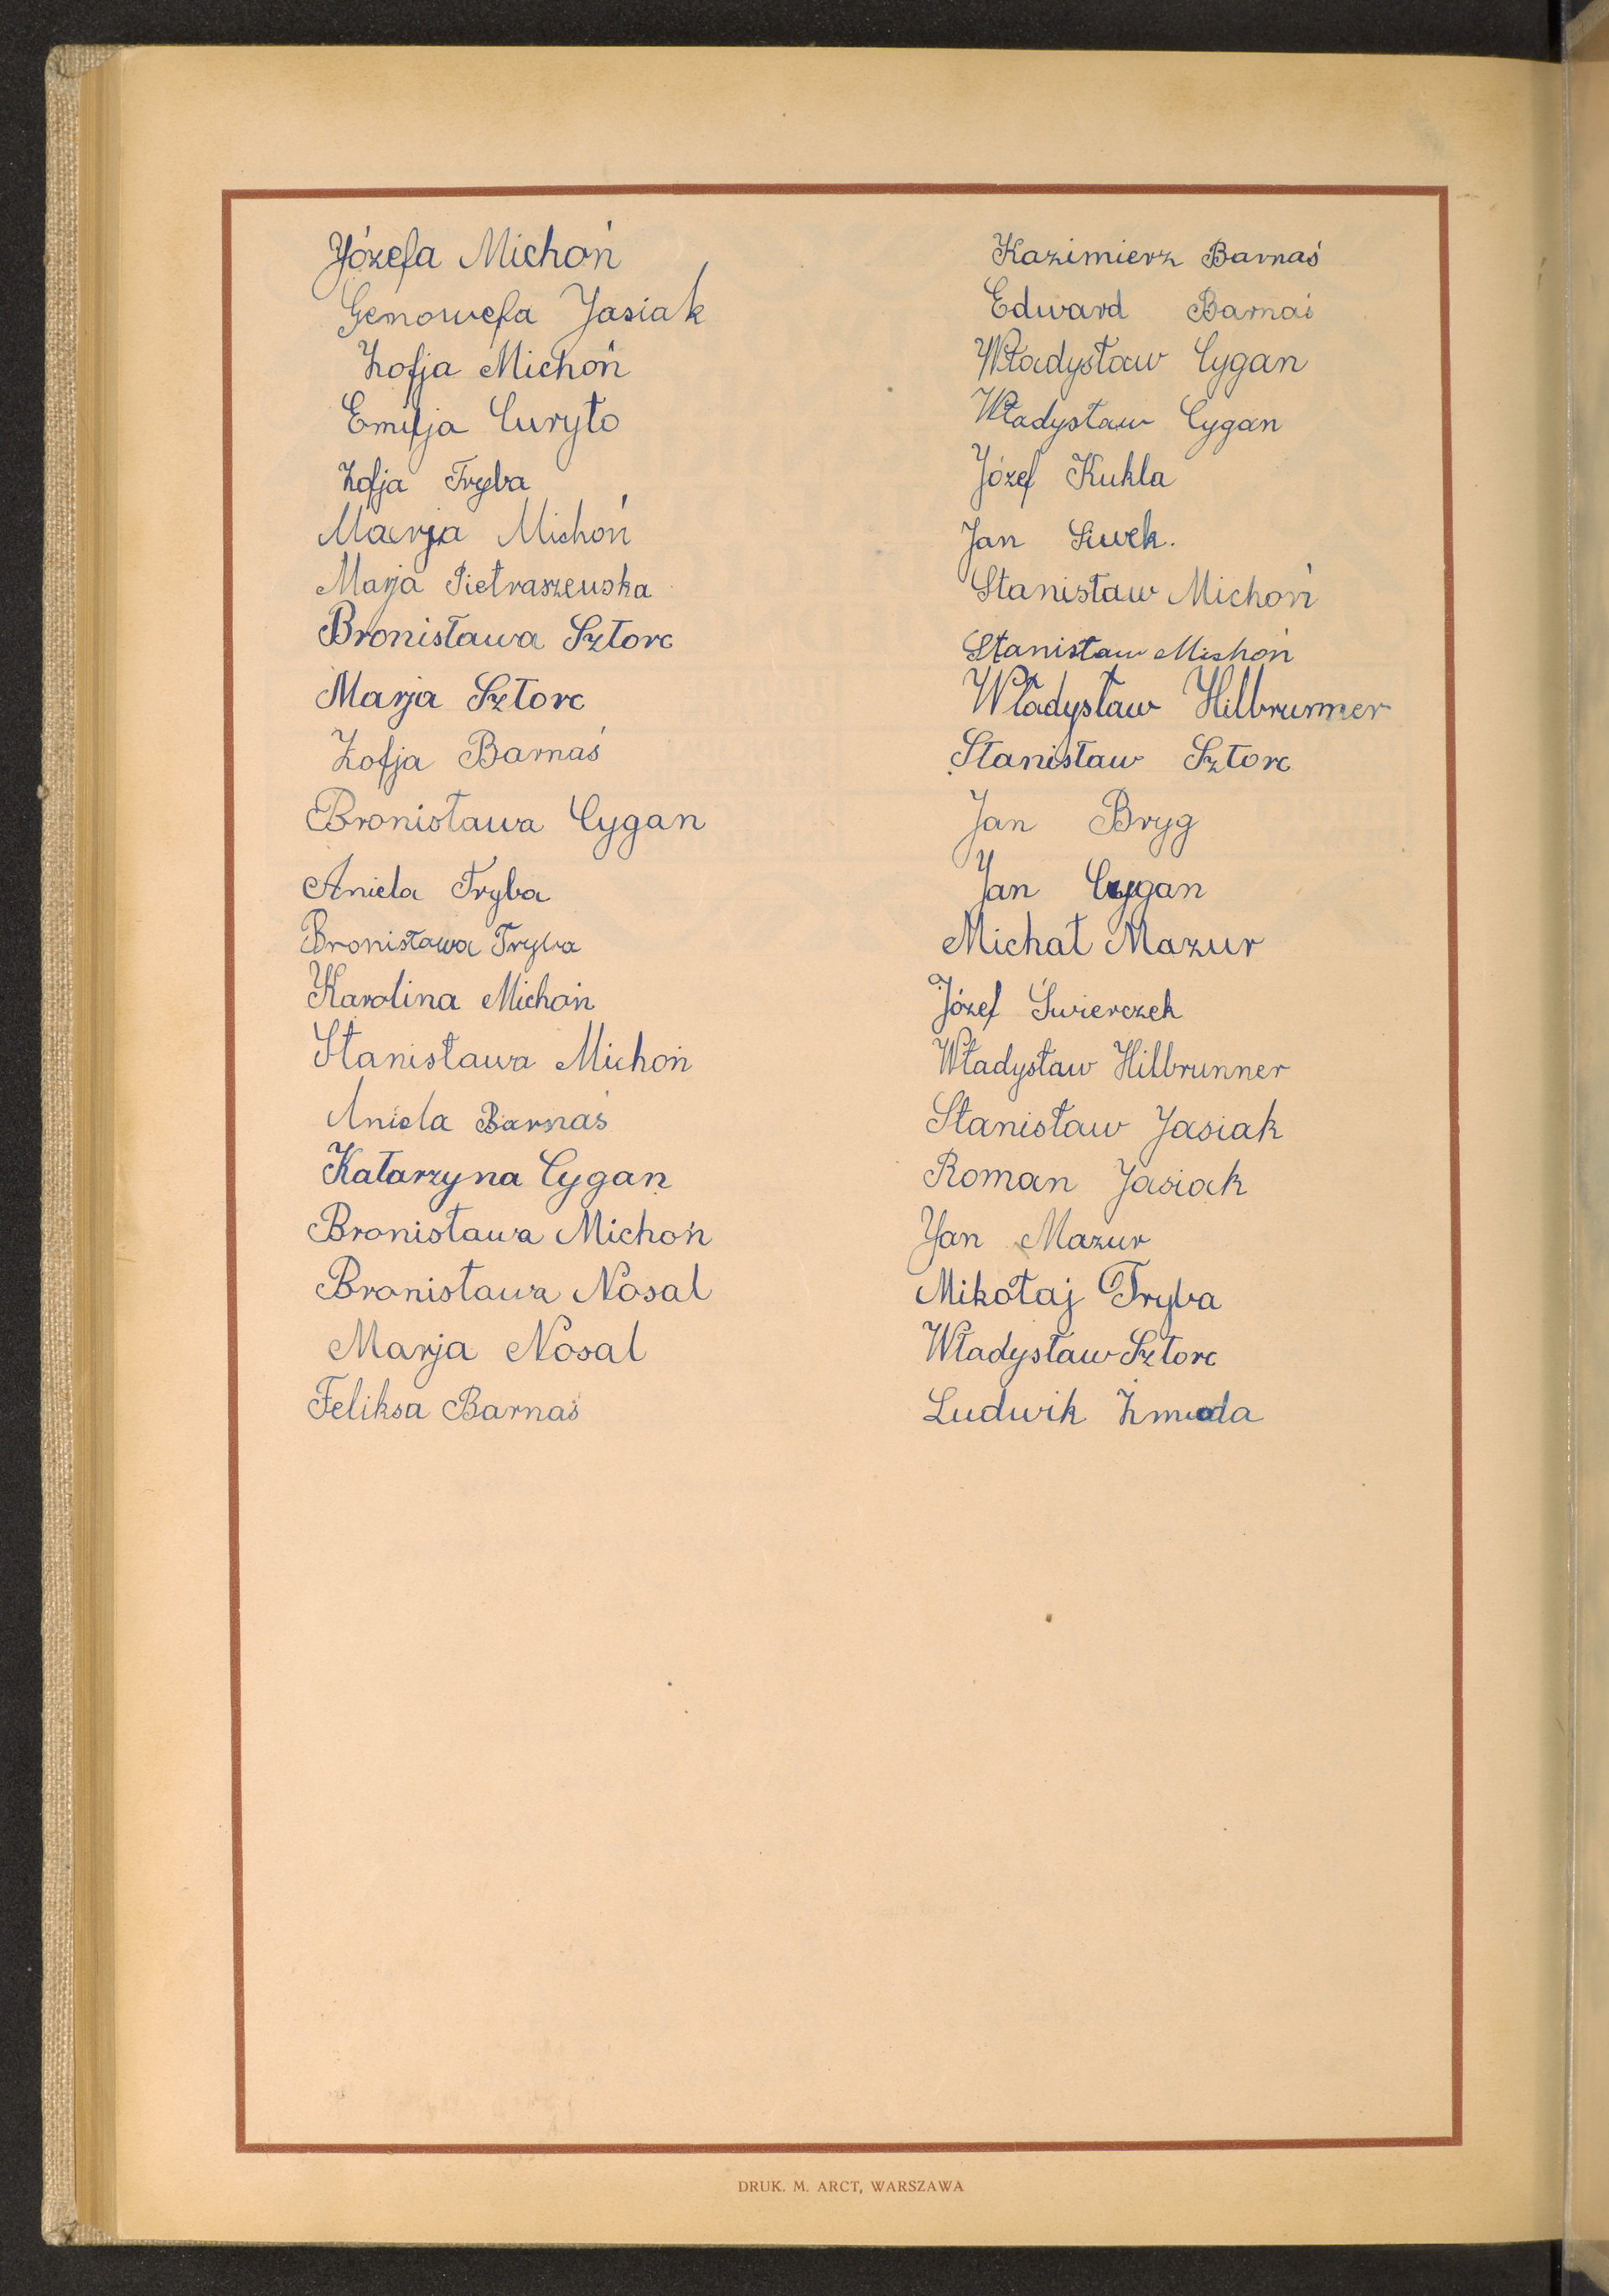 Józefa Michoń
Genowefa Jasiak
Zofja Michoń
Emilja Curyło
Zofja Tryba
Marja Michoń
Marja Pietraszewska
Bronisława Sztorc
Marja Sztorc
Zofja Barnaś
Bronisława Cygan
Aniela Tryba
Bronisława Tryba
Karolina Michoń
Stanisława Michoń
Aniela Barnaś
Katarzyna Cygan
Bronisława Michoń
Bronisława Nosal
Marja Nosal
Feliksa Barnaś
Kazimierz Barnaś
Edward Barnaś
Władysław Cygan
Władysław Cygan
Józef Kukla
Jan Siwek.
Stanisław Michoń
Stanisław Michoń
Władysław Hilbrunner
Stanisław Sztorc
Jan Bryg
Jan Cygan
Michał Mazur
Józef Świerczek
Władysław Hilbrunner
Stanisław Jasiak
Roman Jasiak
Jan Mazur
Mikołaj Tryba
Władysław Sztorc
Ludwik Żmuda
DRUK. M. ARCT, WARSZAWA